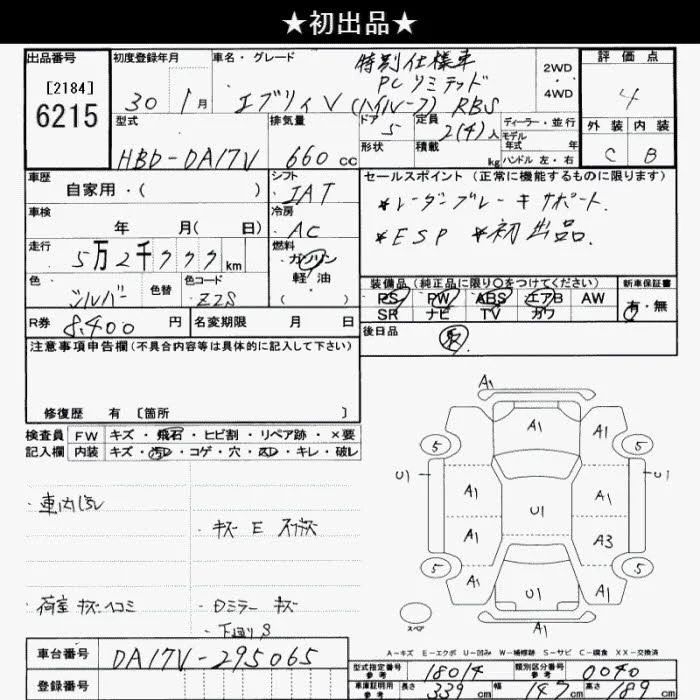 ★初出品★
出品番号 初度登録年月 車名・グレード 特別仕様車 評価点
[2184] PCリミテッド 2WD
6215 30 1月 エブリィV(ハイルーフ) RBS 4WD 4
型式 排気量 ドア 5 定員 2(4)人 ディーラー・並行 外装 内装
HBD-DA17V 660cc 形状 積載 kg モデル年式 年 ハンドル 左・右 C B
車歴 シフト セールスポイント(正常に機能するものに限ります)
自家用・( ) IAT *レーダーブレーキサポート.
車検 冷房
年 月( 日) AC *ESP *初出品.
走行 燃料
5万2千777km ガソリン
色 色替 色コード 軽・油 装備品(純正品に限り○をつけてください) 新車保証書
シルバー ZZS (・) PS PW ABS エアB AW 有・無
R券 8,400円 名変期限 月 日 SR ナビ TV カワ
注意事項申告欄(不具合内容等は具体的に記入して下さい) 後日品
修復歴 有 [箇所 ]
検査員 FW キズ・飛石・ヒビ割・リペア跡・×要
記入欄 内装 キズ・汚れ・コゲ・穴・スレ・キレ・破レ
A1
A1 A1
5 5
U1 U1
A1 A1
U1
A1 A3
5 5
A1 U1 A1
A1
スペア
・車内ヨゴレ
・キズ E
・荷室 キズ ヘコミ ・Dミラー キズ
・下廻りS
A-キズ E-エクボ U-凹み W-補修跡 S-サビ C-腐食 XX-交換済
車台番号 DA17V-295065 型式指定番号 参考 18014 類別区分番号 参考 0040
登録番号 車庫証明用 参考 長さ 339cm 幅 147cm 高さ 189cm